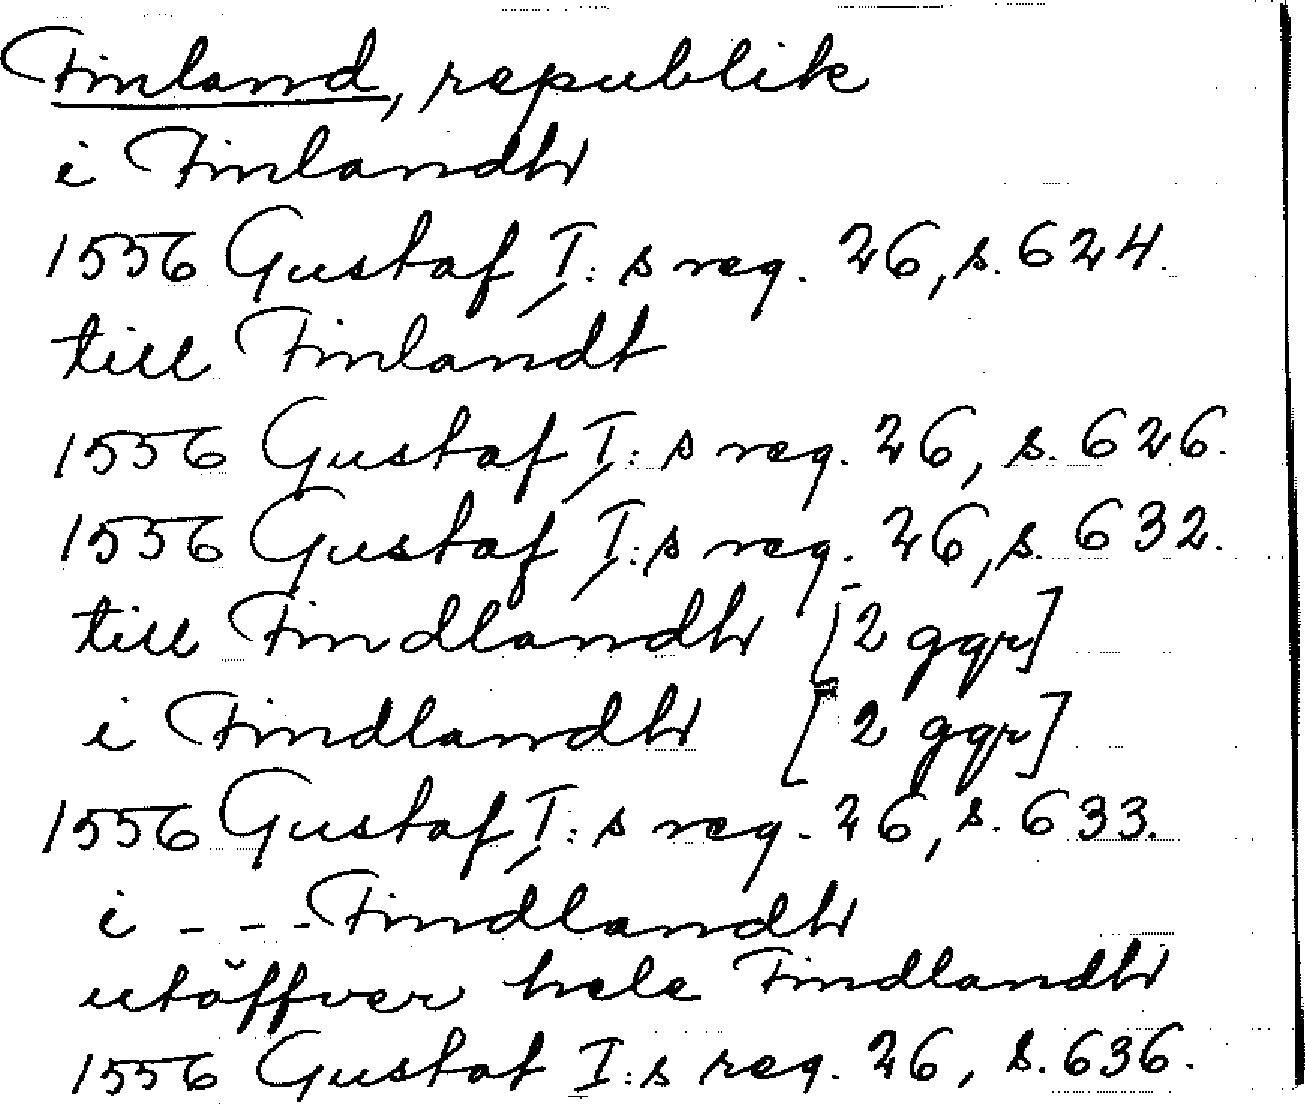 Finland, republik
i Finlandh
1556 Gustaf I:s reg. 26, s. 624.
till Finlandt
1556 Gustaf I:s reg. 26, s. 626.
1556 Gustaf I:s reg. 26, s. 632.
till Findlandh [2 ggr]
i Findlandh [2 ggr]
1556 Gustaf I:s reg. 26, s. 633.
i - - - Findlandh
utöffver hele Findlandh
1556 Gustaf I:s reg. 26, s. 636.